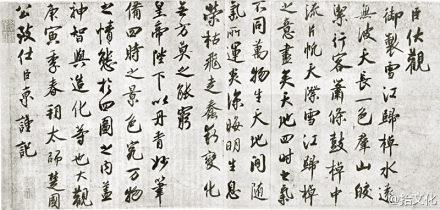 臣伏觀
御製雪江歸棹水遠
無波天長一色群山皎
潔行客蕭條鼓棹中
流片帆天際雪江歸棹
之意盡矣天地四時之氣
不同萬物生天地間隨
氣所運炎涼晦明生息
榮枯飛走蠢動變化
無方莫之能窮
皇帝陛下以丹青妙筆
備四時之景色究萬物
之情態於四圖之內蓋
神智與造化等也大觀
庚寅季春朔太師楚國
公致仕臣京謹記
@拾文化